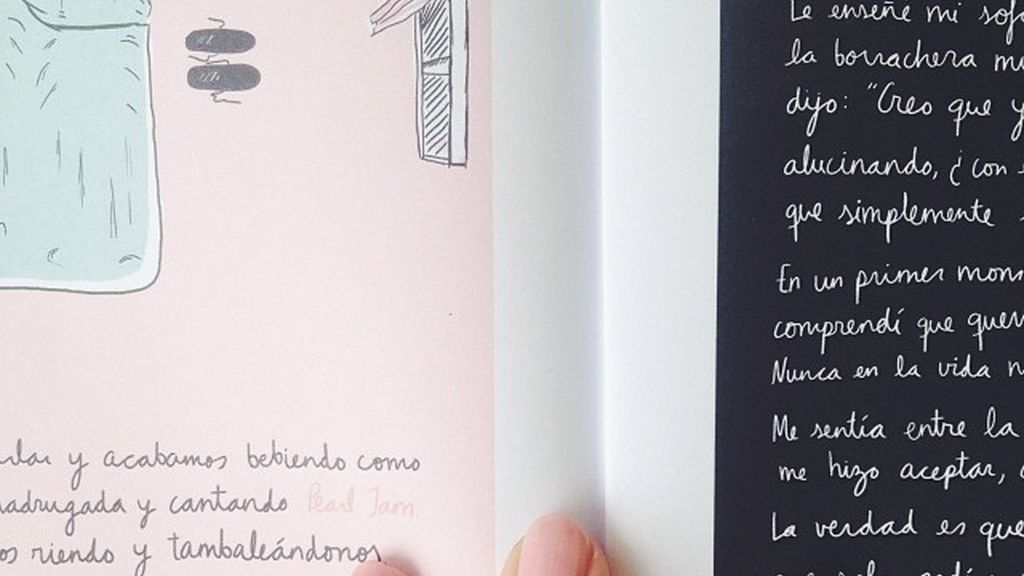 y acabamos bebiendo como
madrugada y cantando Pearl Jam.
riendo y tambaleándonos
Le enseñe mi
la borrachera
dijo: "Creo que
alucinando, ¿con
que simplemente
En un primer
comprendí que
Nunca en la vida
Me sentía entre la
me hizo aceptar,
La verdad es que